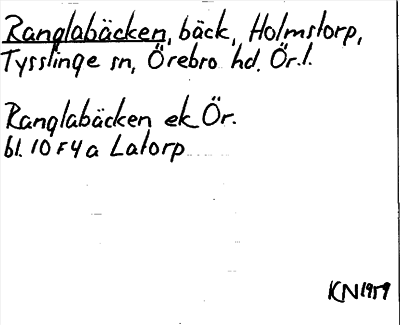 Ranglabäcken, bäck, Holmstorp,
Tysslinge sn, Örebro hd. Ör.l.
Ranglabäcken ek Ör.
bl. 10 F 4 a Latorp
KN 1959